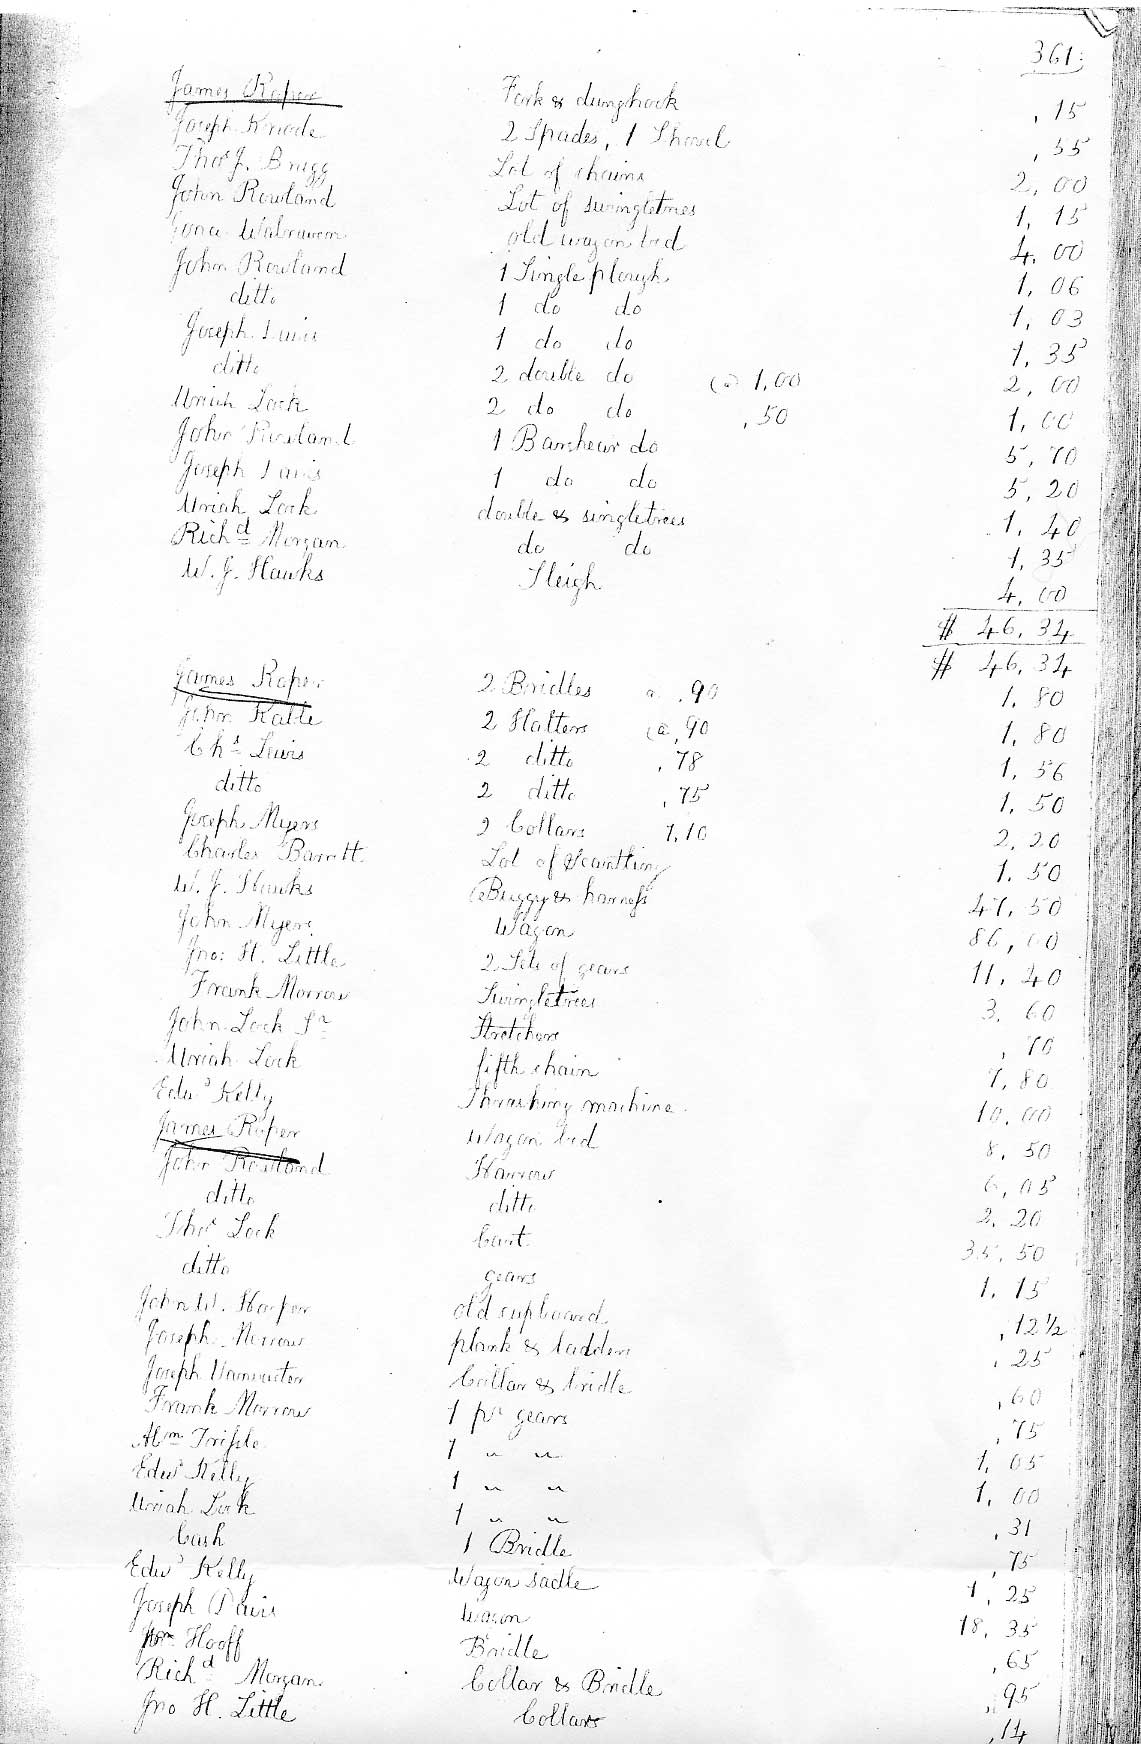 361
James Roper Fork & dunghook ,15
Joseph Knode 2 Spades, 1 Shovel ,55
Thos J. Bragg Lot of chains 2,00
John Rowland Lot of swingletrees 1,15
Walraven old wagon bed 4,00
John Rowland 1 Single plough 1,06
ditto 1 do do 1,03
Joseph 1 do do 1,35
ditto 2 double do @ 1,00 2,00
Uriah Lock 2 do do ,50 1,00
John Rowland 1 Barshear do 5,70
Joseph 1 do do 5,20
Uriah Lock double & singletrees 1,40
Richd Morgan do do 1,35
W. J. Hawks Sleigh 4,00
$ 46,34
$ 46,34
James Roper 2 Bridles a ,90 1,80
John Kable 2 Halters @ ,90 1,80
Chs Lewis 2 ditto ,78 1,56
ditto 2 ditto ,75 1,50
Joseph Myers 2 Collars 1,10 2,20
Charles Barrett Lot of Scantling 1,50
W. J. Hawks Buggy & harness 47,50
John Myers Wagon 86,00
Jno: H. Little 2 Sets of gears 11,40
Frank Morrow Swingletrees 3,60
John Lock Sr Stretchers ,70
Uriah Lock fifth chain 7,80
Edwd Kelly Thrashing machine 10,00
James Roper Wagon bed 8,50
John Rowland Harrow 6,05
ditto ditto 2,20
Thos Lock Cart 35,50
ditto gears 1,15
John W. Harper old cupboard ,12½
Joseph Morrow plank & ladders ,25
Joseph Collar & bridle ,60
Frank Morrow 1 pr gears ,75
Abm Trissle 1 " " 1,05
Edwd Kelly 1 " " 1,00
Uriah Lock 1 " " ,31
Cash 1 Bridle ,75
Edwd Kelly Wagon Sadle 1,25
Joseph Davis Wagon 18,35
Hooff Bridle ,65
Richd Morgan Collar & Bridle ,95
Jno H. Little Collars ,14